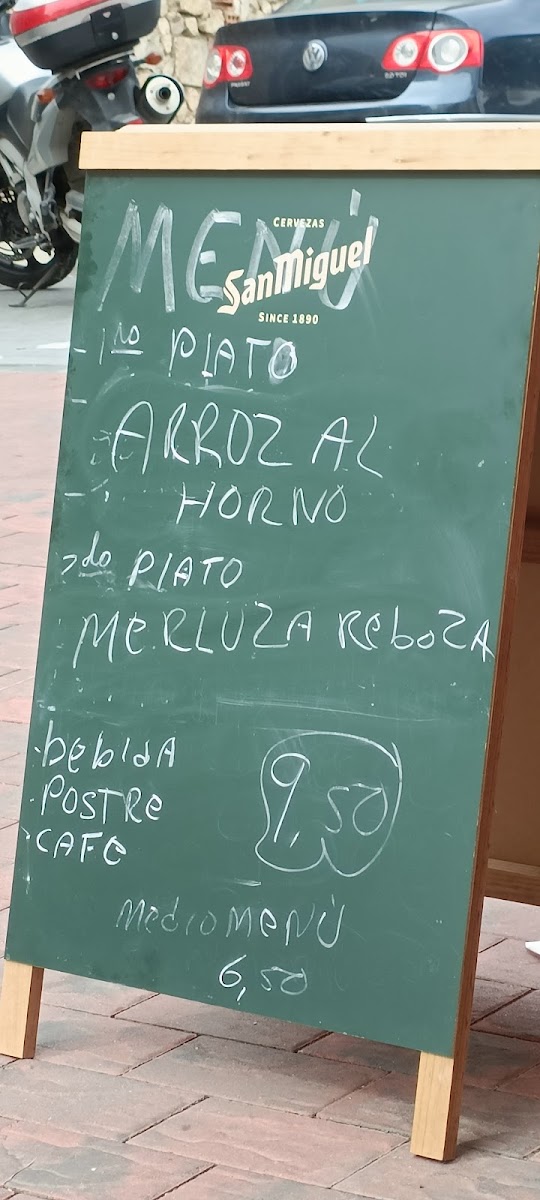 CERVEZAS
MENÚ
SanMiguel
SINCE 1890
- 1ro PLATO
ARROZ AL
HORNO
2do PLATO
MERLUZA REBOZA
- BEBIDA
- POSTRE
- CAFE
9,50
MEDIO MENÚ
6,50